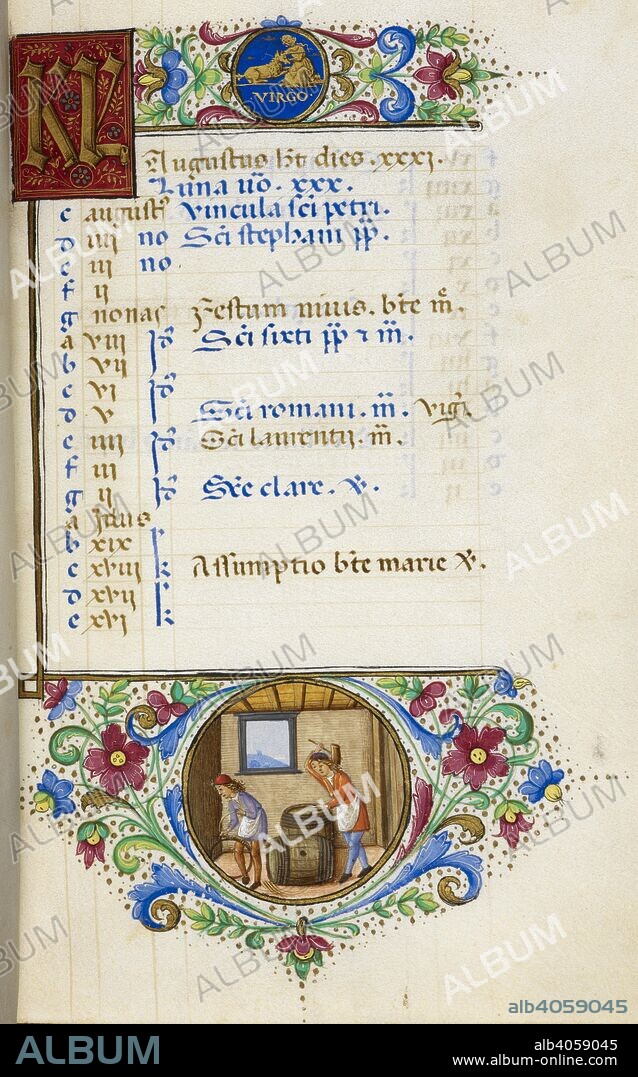 KL
VIRGO
Augustus ht dies .xxxj.
Luna vo. xxx.
c august9 Vincula sci petri.
d iiij no Sci stephani pp.
e iij no
f ij
g nonas Festum niuis. bte m.
a viij jd Sci sixti pp & m.
b vij
c vj jd
d v Sci romani. m. vigi.
e iiij jd Sci laurentij. m.
f iij
g ij jd Scte clare. v.
a jdus
b xix k
c xviij k Assumptio bte marie v.
d xvij k
e xvj k
ALBUM
alb4059045
ALBUM
alb4059045
www.album-online.com